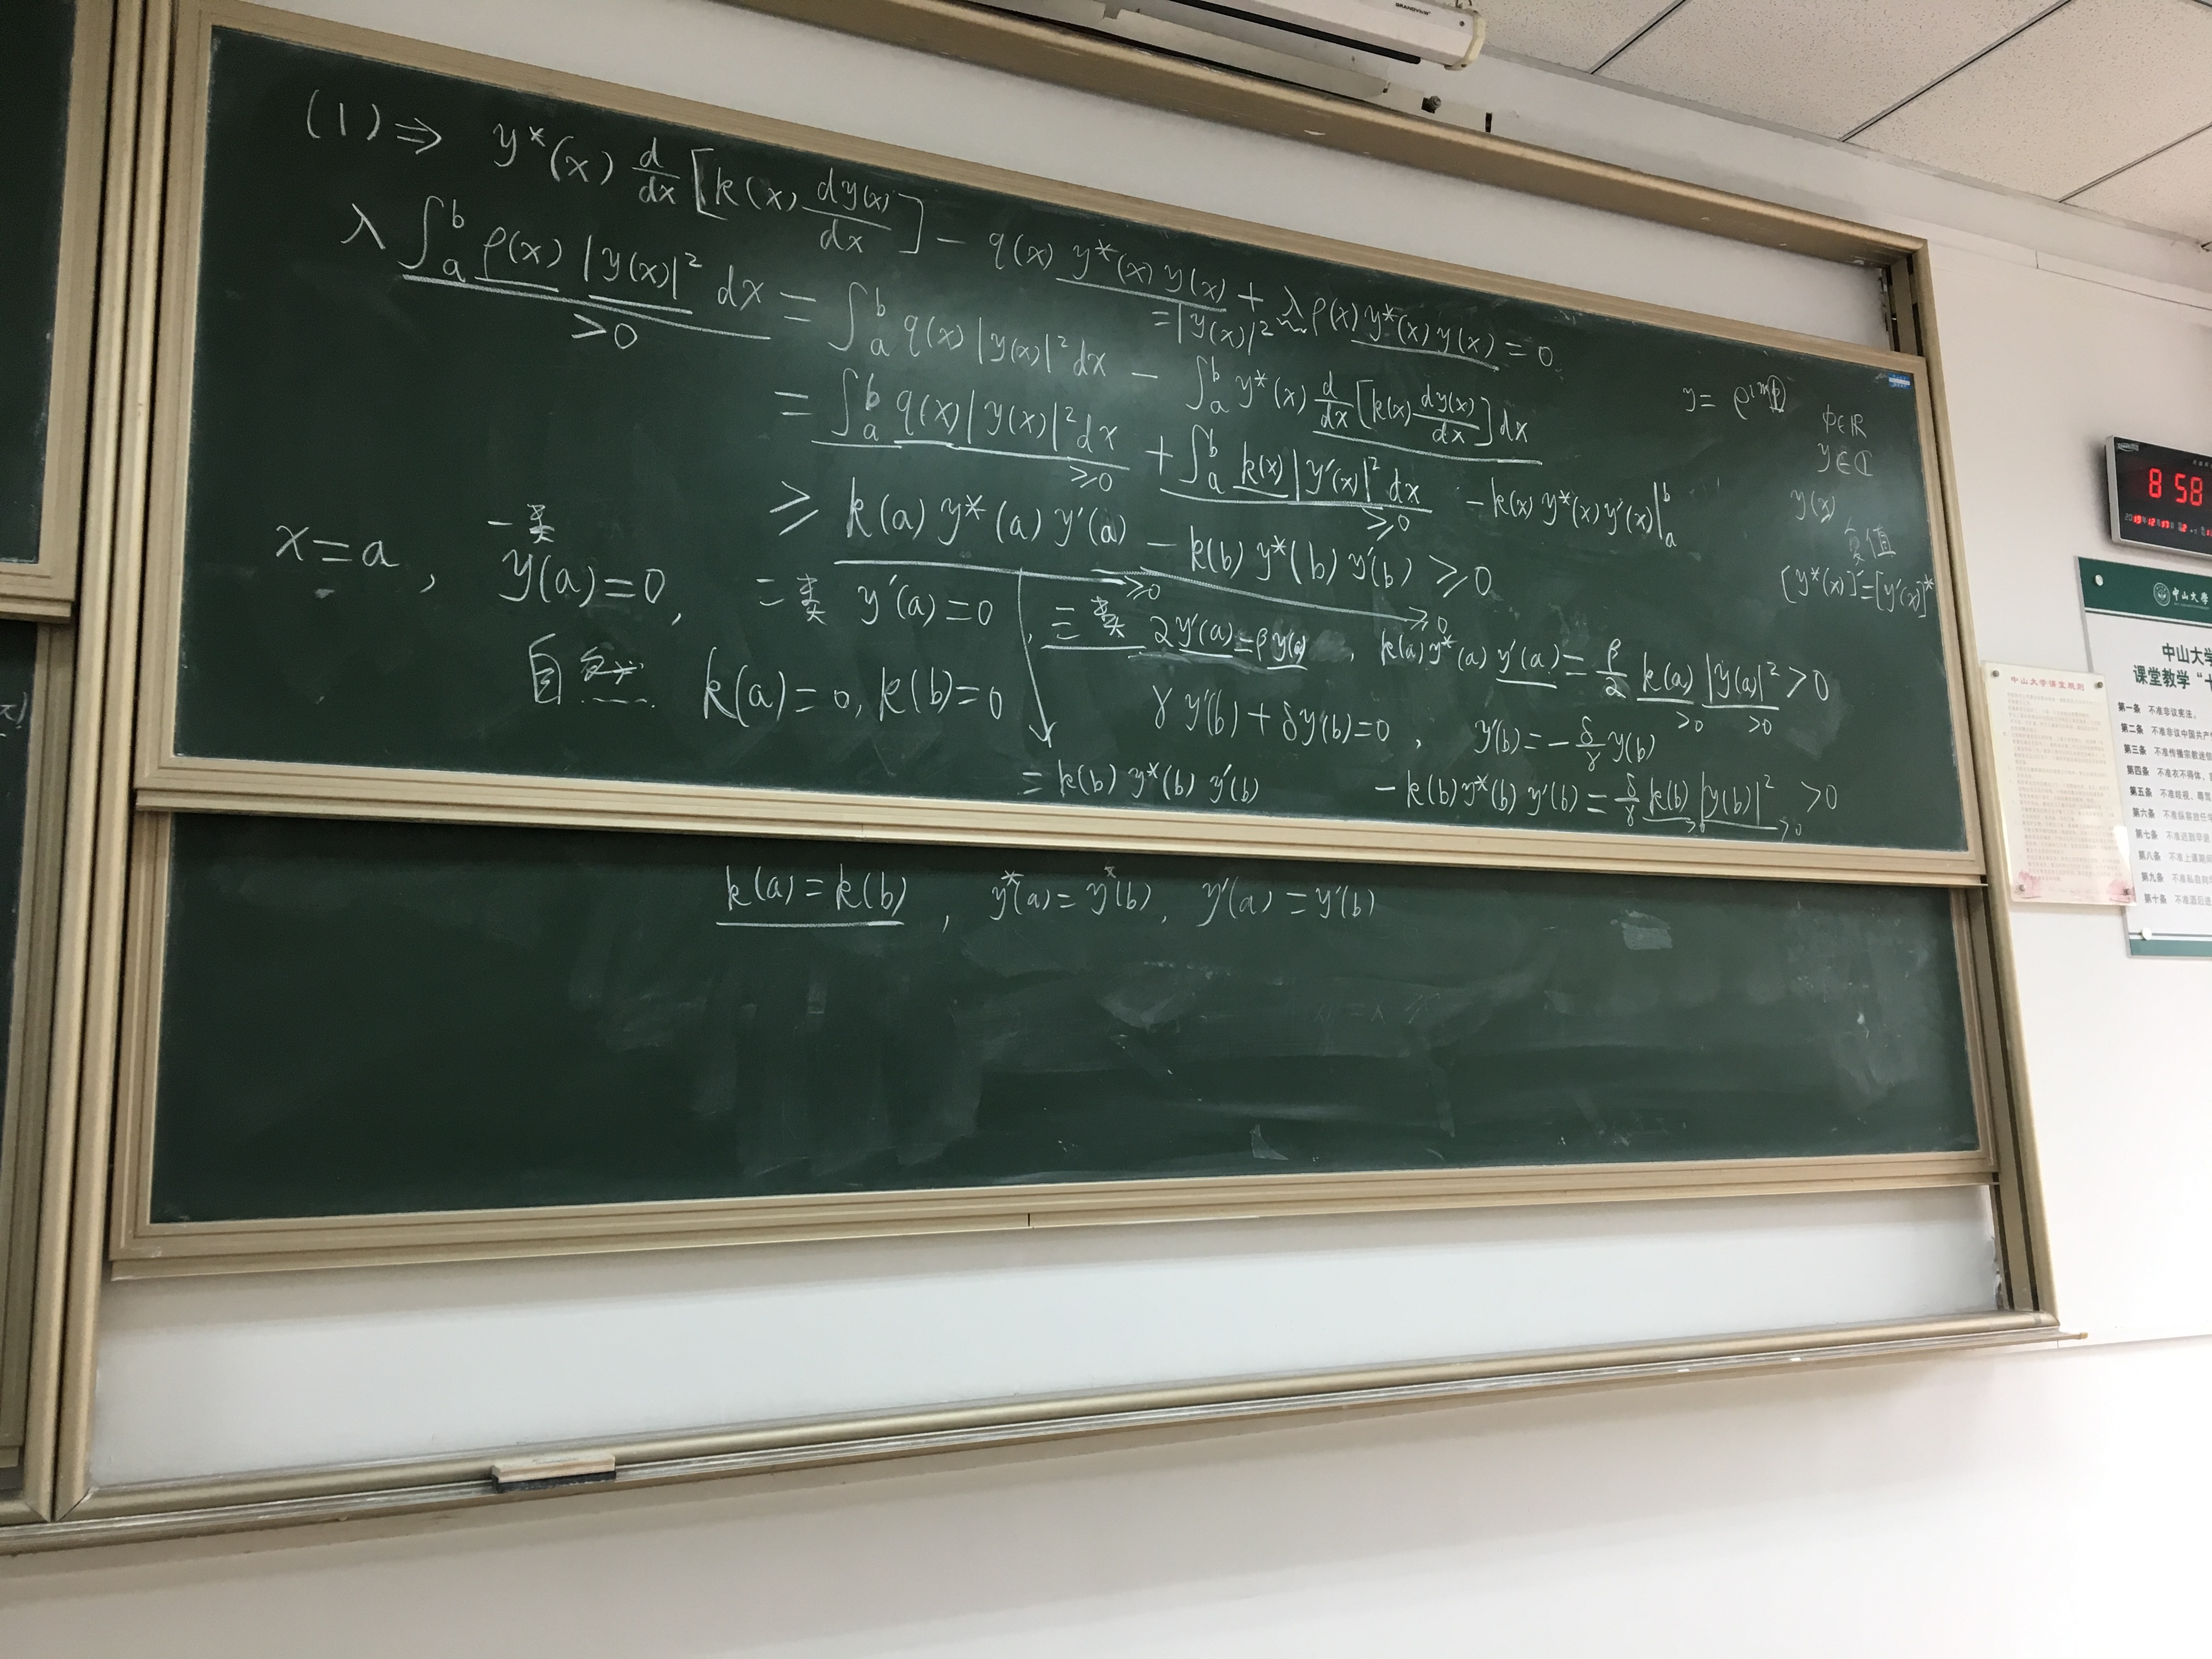 (1) ⇒ y*(x) d/dx [k(x) dy(x)/dx] − q(x) y*(x) y(x) + λρ(x) y*(x) y(x) = 0
= |y(x)|²
λ ∫_a^b ρ(x) |y(x)|² dx = ∫_a^b q(x) |y(x)|² dx − ∫_a^b y*(x) d/dx [k(x) dy(x)/dx] dx
>0
= ∫_a^b q(x) |y(x)|² dx + ∫_a^b k(x) |y'(x)|² dx − k(x) y*(x) y'(x)|_a^b
≥0 ≥0
≥ k(a) y*(a) y'(a) − k(b) y*(b) y'(b) ≥ 0
≥0 ≥0
x = a, 一类 y(a)=0, 二类 y'(a)=0, 三类 2y'(a)=βy(a), k(a)y*(a) y'(a) = β/2 k(a) |y(a)|² >0
>0 >0
自然 k(a)=0, k(b)=0
γ y'(b) + δy(b)=0, y'(b) = −δ/γ y(b)
= k(b) y*(b) y'(b)
−k(b) y*(b) y'(b) = δ/γ k(b) |y(b)|² >0
>0 >0
k(a) = k(b), y*(a) = y*(b), y'(a) = y'(b)
φ∈ℝ
y∈ℂ
y(x)
值
[y*(x)]'=[y'(x)]*
GRANDVIEW
8 58
中山大学课堂规则
中山大学
中山大学
课堂教学“十
第一条 不准非议宪法。
第二条 不准非议中国共产
第三条 不准传播宗教迷信
第四条 不准衣不得体，
第五条 不准歧视、辱骂
第六条 不准纵容放任学
第七条 不准迟到早退
第八条 不准上课期间
第九条 不准私自向学
第十条 不准酒后进